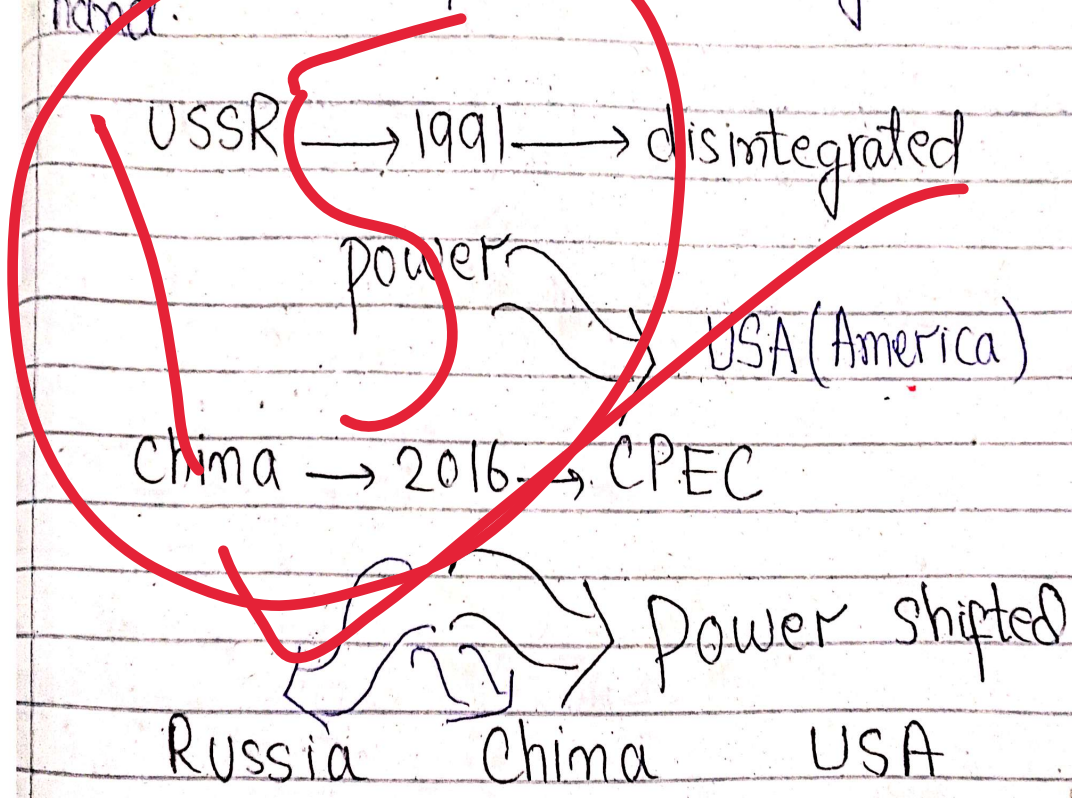 USSR → 1991 → disintegrated
power
USA (America)
China → 2016 → CPEC
Power shifted
Russia China USA
15